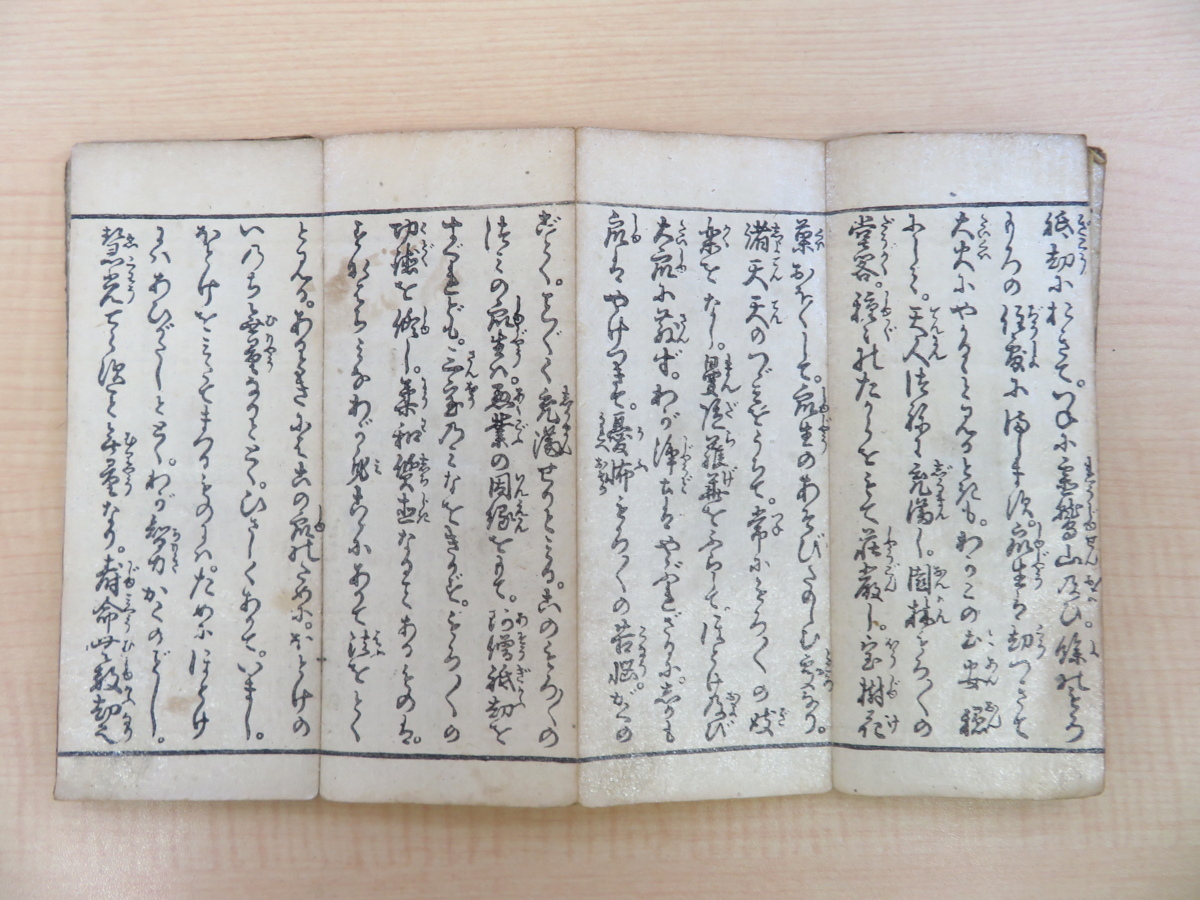 祇劫におきて。つねに霊鷲山及び餘のもろ
もろの住處にゐます。衆生は劫つきて
大火にやかるゝとみるときも。わがこの土安穏
にして。天人つねに充満し。園林もろ〱の
堂閣。種々のたからをもて荘厳し。宝樹花
菓おほくして。衆生のあそびたのしむ処なり。
諸天天のつゞみをうちて。常にもろ〱の妓
楽をなし。曼陀羅華をふらして。ほとけ及び
大衆に散ず。わが浄土はやぶれざるに。しかも
衆はやけつきて。憂怖もろ〱の苦悩かくの
ごとく。こと〲く充満せりとみる。このもろ〱の
つみの衆生は。悪業の因縁をもて。阿僧祇劫を
すぐれども。三宝のみなをきかず。もろ〱の
功徳を修し。柔和質直なることあるものは。
すなはちみなわが身こゝにありて法をとく
とみる。あるときはこの衆のために。ほとけの
いのち無量なりととく。ひさしくありて。いまし。
ほとけをみたてまつるものには。ためにほとけ
にはあひがたしととく。わが智力かくのごとし。
慧光てらすこと無量なり。寿命無数劫